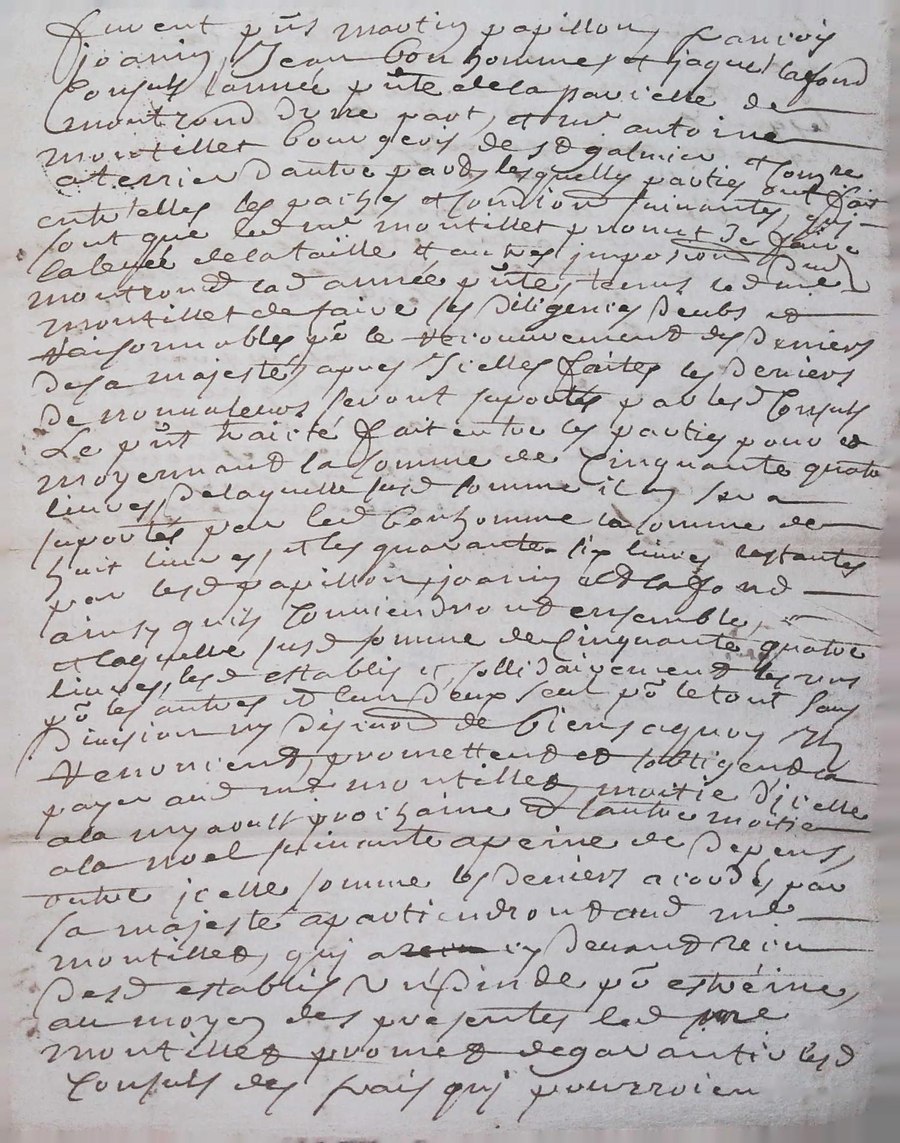 furent pnts martin papillon, francois
joanin, Jean bon hommes et jaques lafond
Consuls lannée pnte de la parcelle de
montrond dune part, et mre antoine
montillet bourgeois de st galmier et commre
a terrier dautre part, lesquelles parties ont fait
entrelles les paches et convions suivantes, qui
sont que led mre montillet promet de faire
la levée de la taille et autres impositions dud
montrond lad année pnte, tenus led mre
montillet de faire les diligences deubs et
raisonnables pr le recouvrement des deniers
de sa majesté, apres Icelles faites les deniers
de nonvaleurs seront suportés par lesd Consuls
Le pnt traicté fait entre les parties pour et
moyennant la somme de Cinquante quatre
livres, De laquelle susd somme il en sera
suportés par led bonhomme la somme de
huit livres, et les quarante six livres restantes
par lesd papillon, joanin et lafond
ainsy quils Conviendront ensemble,
et laquelle susd somme de Cinquante quatre
livres, lesd establis et sollidairement les uns
pr les autres et lun deux seul pr le tout sans
Division ny discution de biens aquoy Ils
renoncient, promettent et sobligent a
payer aud mre montillet, moitie dicelle
a la my aoust prochaine et lautre moitie
a la noel suivante apeine de depens,
outre jcelle somme les deniers acordés par
sa majesté apartiendront aud mre
montillet, qui a en Devant receu
desd establis Un dinde pr estreine,
au moyen des presentes led mre
montillet promet de garantir lesd
Consuls des frais qui pourroien